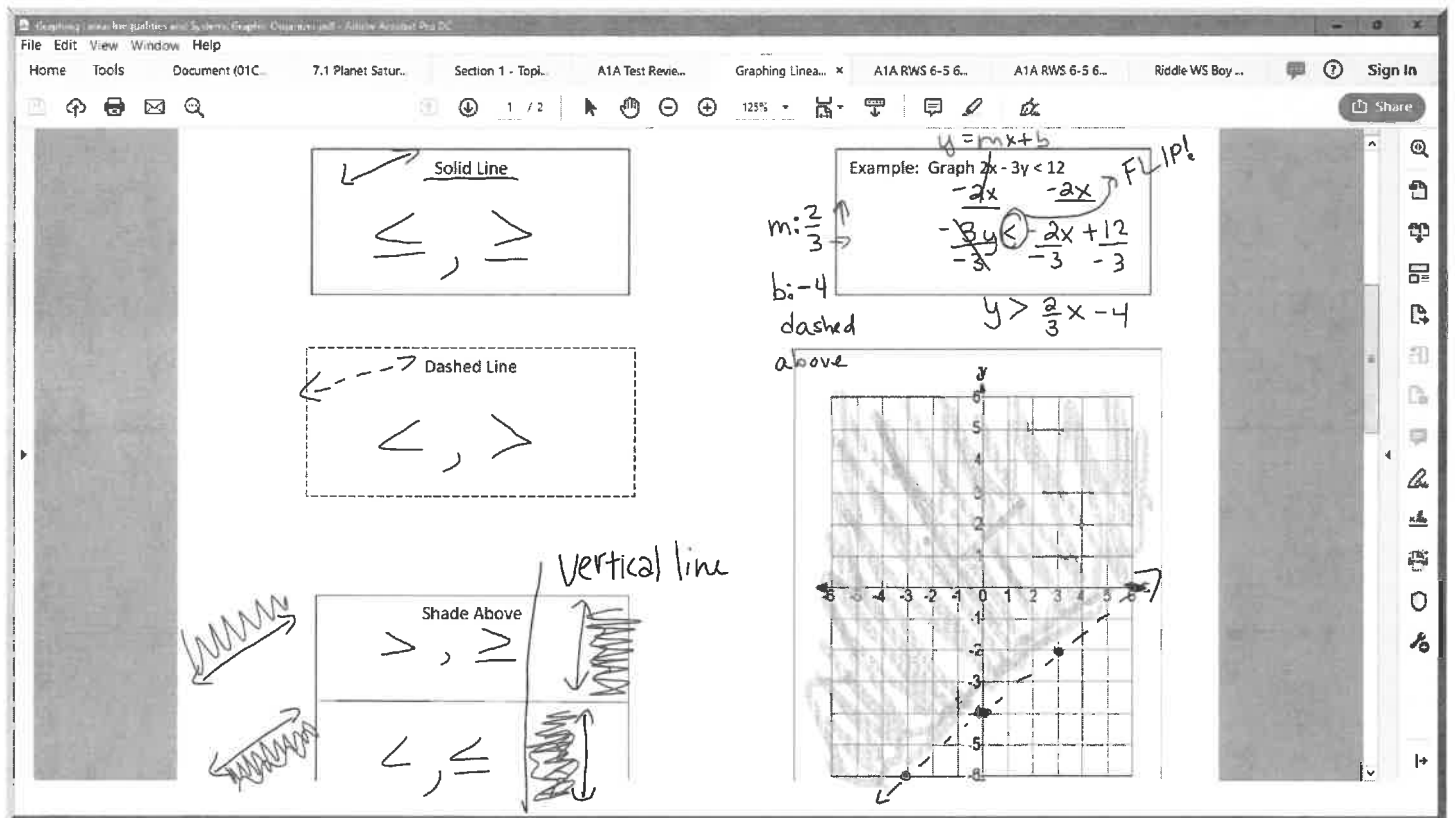 Graphing Linear Inequalities and Systems Graphic Organizer.pdf - Adobe Acrobat Pro DC
File Edit View Window Help
Home Tools Document (01C... 7.1 Planet Satur... Section 1 - Topi... A1A Test Revie... Graphing Linea... × A1A RWS 6-5 6... A1A RWS 6-5 6... Riddle WS Boy ... Sign In
1 / 2 125% Share
Solid Line
≤ , ≥
Dashed Line
< , >
vertical line
Shade Above
> , ≥
< , ≤
y = mx + b
Example: Graph 2x - 3y < 12
FLIP!
-2x -2x
-3y < -2x + 12
-3 -3 -3
y > 2/3 x - 4
m: 2/3
b: -4
dashed
above
y
6
5
4
3
2
1
-6 -5 -4 -3 -2 -1 0 1 2 3 4 5 6
-1
-2
-3
-5
-6